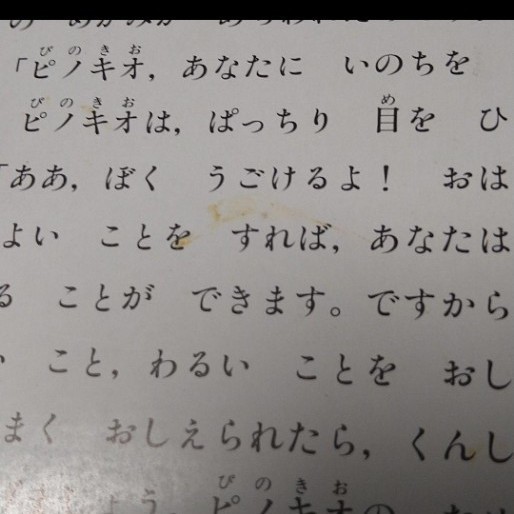 「ピノキオ，あなたに　いのちを
ピノキオは，ぱっちり　目を　ひ
「ああ，ぼく　うごけるよ！　おは
よい　ことを　すれば，あなたは
る　ことが　できます。ですから
い　こと，わるい　ことを　おし
まく　おしえられたら，くんし
ょう。ピノキオの